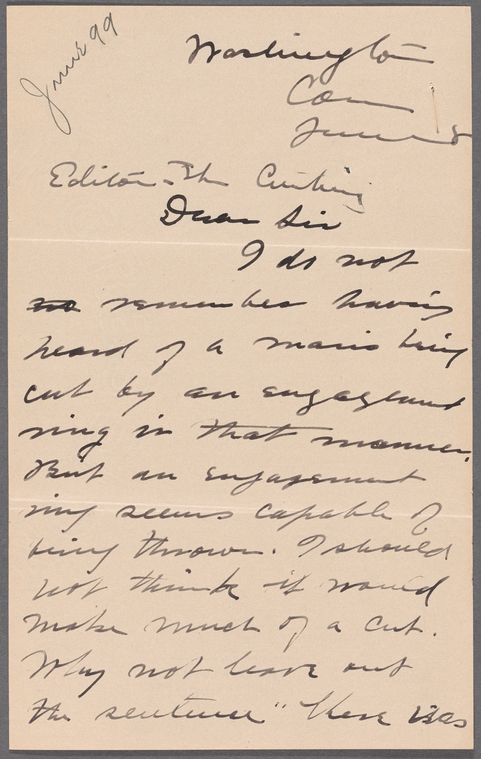 June 99
Washington
Con
June 8
Editor The Century
Dear Sir
I do not
no remember having
heard of a man's being
cut by an engagement
ring in that manner.
But an engagement
ring seems capable of
being thrown. I should
not think it would
make much of a cut.
Why not leave out
the sentence "There was